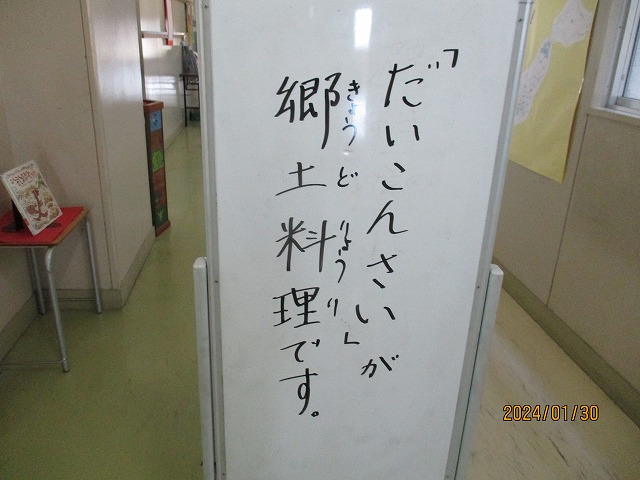 「だいこんさいが
郷土料理」です。
きょうど りょうり
2024/01/30